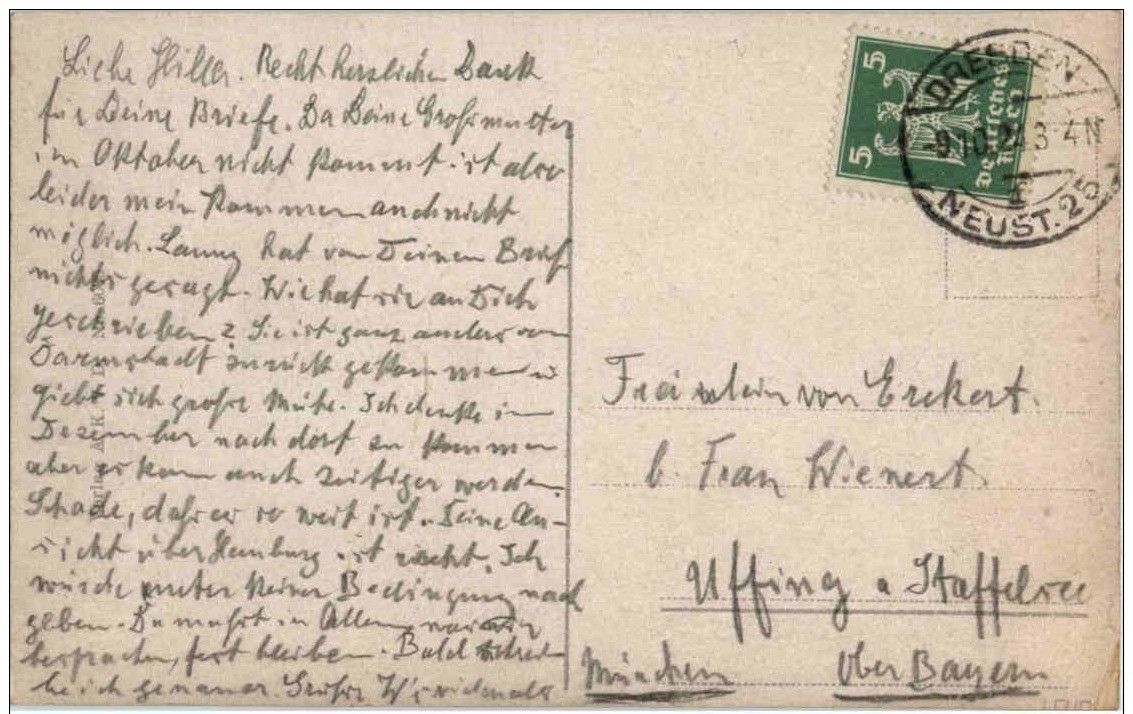 Liebe Hiller. Recht herzlichen Dank
für Deine Briefe. Da Deine Grossmutter
im Oktober nicht kommt ist also
leider mein Kommen auch nicht
möglich. hat von Deinem Brief
nichts gesagt. Wie hat sie an Dich
geschrieben? Sie ist ganz anders von
Darmstadt zurück gekommen u
giebt sich grosse Mühe. Ich denke im
Dezember nach dort zu kommen
aber es kann auch zeitiger werden.
Schade, dass es so weit ist. Deine An-
sicht über Hamburg ist recht. Ich
würde unter keiner Bedingung nach
geben. Du musst in Allem was wir
besprachen, fest bleiben. Bald schrei-
be ich genauer. Grüsse vielmals
5
5
Deutsches
DRESDEN-
-9.10.24. 3-4 N
NEUST. 25
Fräulein von Erckert.
b. Frau Wienert.
Uffing a Staffelsee
München Ober Bayern